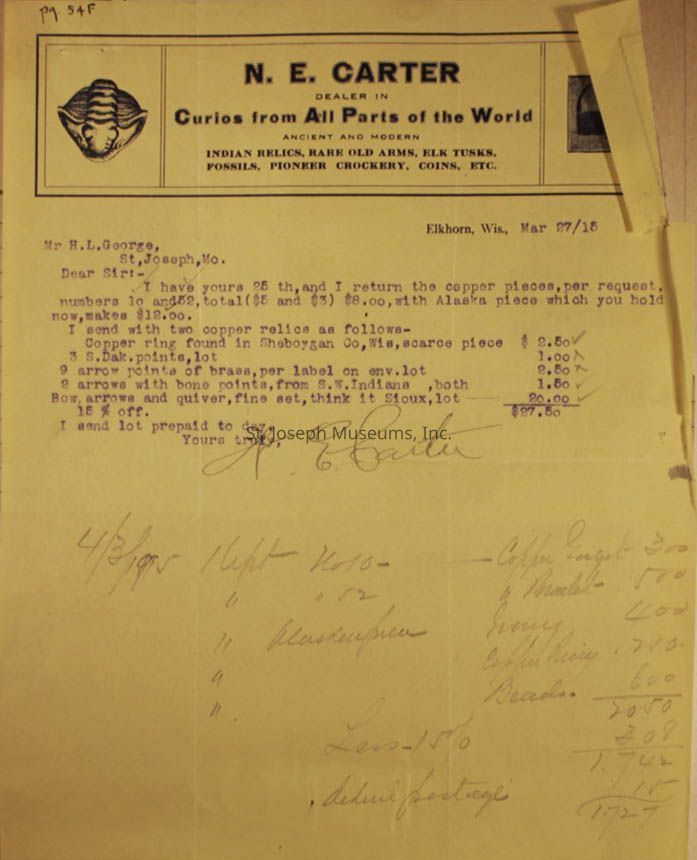 pg. 54F
N. E. CARTER
DEALER IN
Curios from All Parts of the World
ANCIENT AND MODERN
INDIAN RELICS, RARE OLD ARMS, ELK TUSKS,
FOSSILS, PIONEER CROCKERY, COINS, ETC.
Elkhorn, Wis., Mar 27/15
Mr H.L.George,
St,Joseph,Mo.
Dear Sir:-
I have yours 25 th,and I return the copper pieces,per request,
numbers 10 and52,total($5 and $3) $8.00,with Alaska piece which you hold
now,makes $12.00.
I send with two copper relics as follows-
Copper ring found in Sheboygan Co,Wis,scarce piece $ 2.50
3 S.Dak.points,lot 1.00
9 arrow points of brass,per label on env.lot 2.50
2 arrows with bone points,from S.W.Indians ,both 1.50
Bow,arrows and quiver,fine set,think it Sioux,lot 20.00
$27.50
15 % off.
I send lot prepaid to day,
Yours truly,
St. Joseph Museums, Inc.
N. E. Carter
4/3/1915 1 Kept No 10 - Copper Gorget 300
" " 52 " Bracelet 500
" Alaskan piece Ivory 400
" Copper Ring 250
" Beads. 600
2050
Less-15% 308
1.742
deduct postage 15
1.727